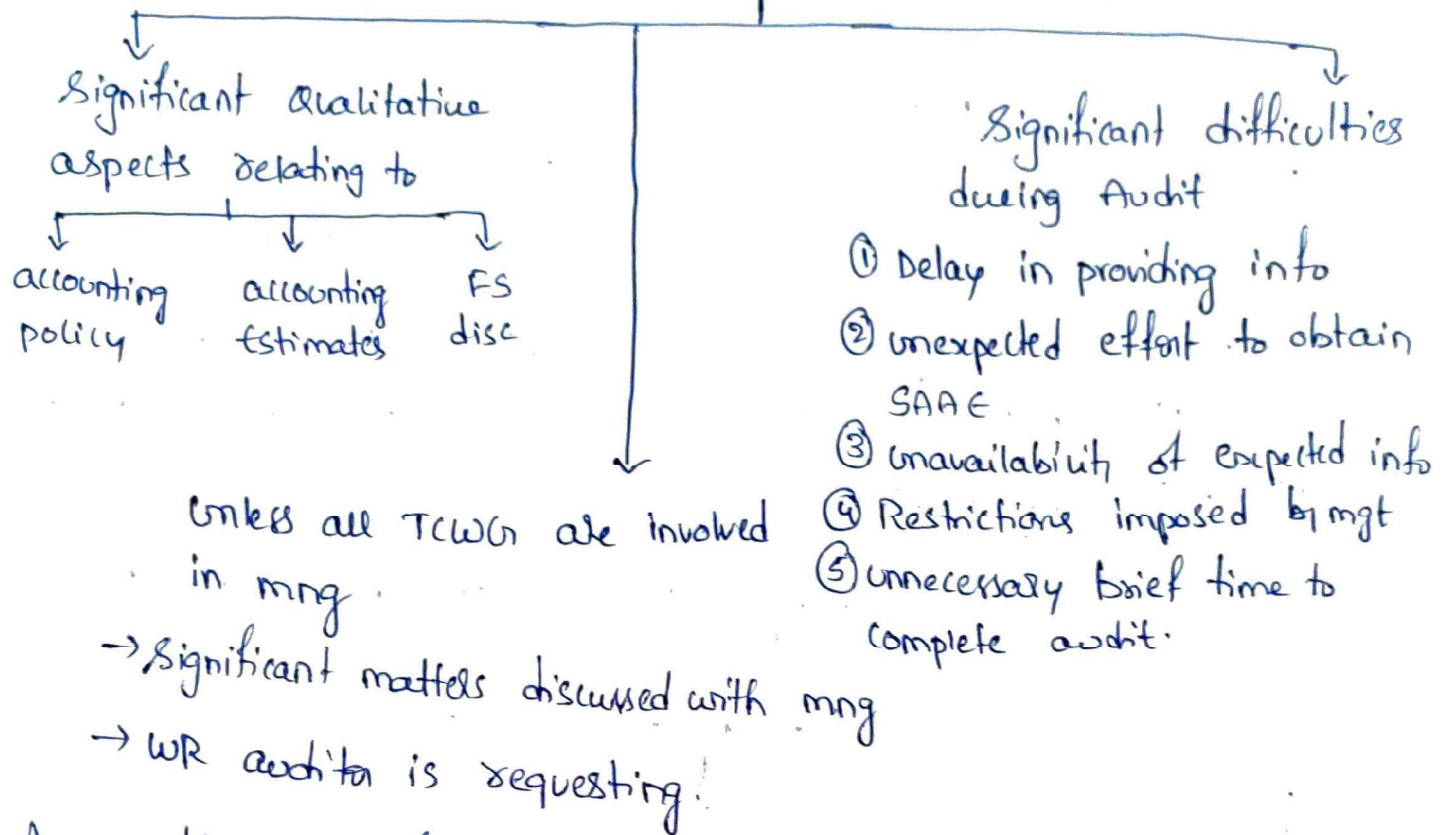 Significant Qualitative
aspects relating to
accounting policy
accounting Estimates
FS disc
Unless all TCWG are involved
in mng
→ Significant matters discussed with mng
→ WR auditor is requesting.
Significant difficulties
during Audit
① Delay in providing info
② unexpected effort to obtain
SAAE
③ unavailability of expected info
④ Restrictions imposed by mgt
⑤ unnecessary brief time to
complete audit.